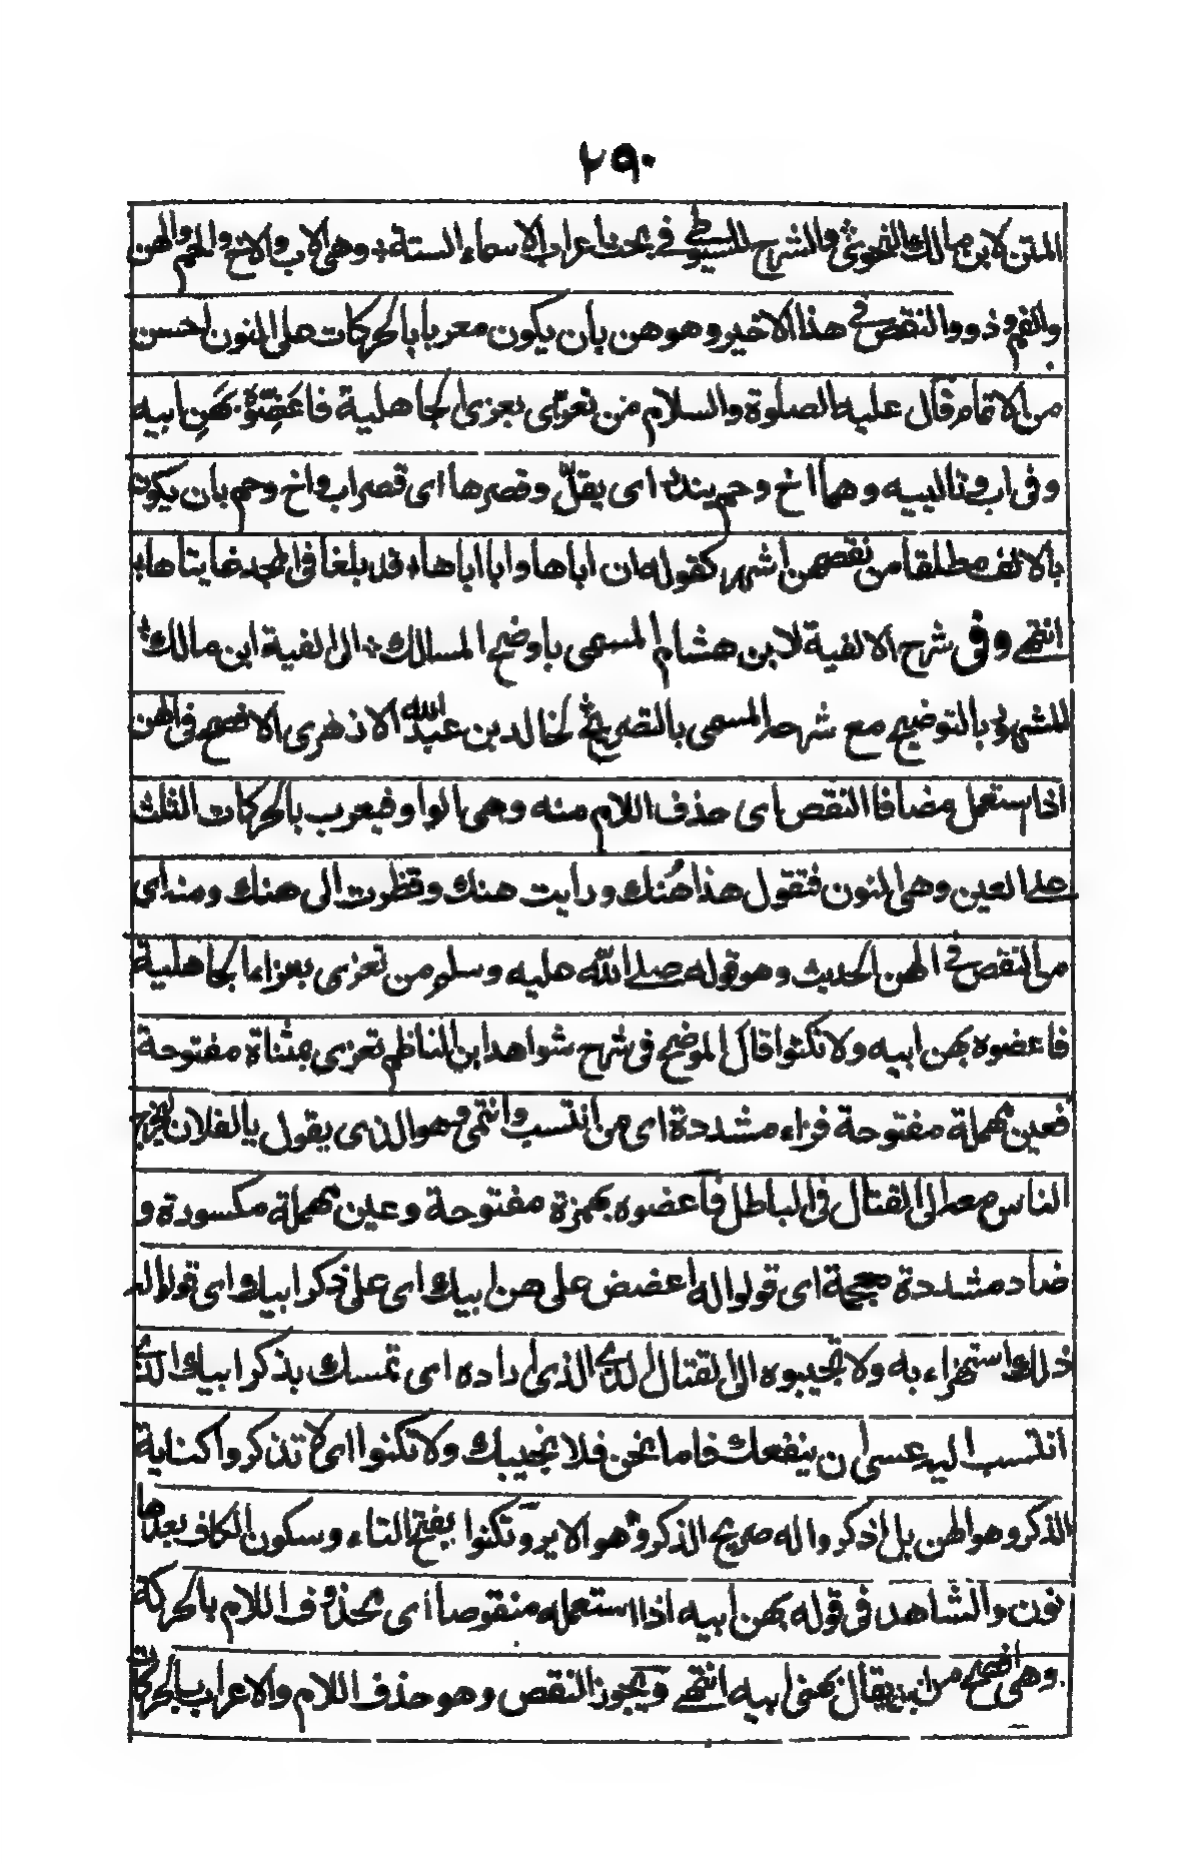 ٢٩٠
المتن لابن مالك النحوي والشرح للسيوطي في بحث اعراب الاسماء الستة وهي الاب والاخ والحم والهن
والفم وذو والنقص في هذا الاخير وهو هن بأن يكون معربا بالحركات على النون احسن
من الاتمام قال عليه الصلوة والسلام من تعزى بعزى الجاهلية فاعضوه بهن ابيه
وفى اب وتالييه وهما اخ وحم يندر اى يقل وقصرها اى قصر اب واخ وحم بان يكون
بالالف مطلقا من نقصهن اشهر كقوله ان اباها وابا اباها قد بلغا فى المجد غايتاها
انتهى وفى شرح الالفية لابن هشام المسمى باوضح المسالك الى الفية ابن مالك
المشهور بالتوضيح مع شرحه المسمى بالتصريح لخالد بن عبد الله الازهرى الافصح فى الهن
اذا استعمل مضافا النقص اى حذف اللام منه وهى الواو فيعرب بالحركات الثلث
على العين وهى النون فتقول هذا هنك ورايت هنك ونظرت الى هنك ومنه اى
من النقص في الهن الحديث وهو قوله صلى الله عليه وسلم من تعزى بعزاء الجاهلية
فاعضوه بهن ابيه ولا تكنوا قال الموضح فى شرح شواهد ابن الناظم تعزى بمثناة مفتوحة
فعين مهملة مفتوحة فزاء مشددة اى من انتسب وانتمى وهو الذى يقول يا لفلان ليخرج
الناس معه الى القتال فى الباطل فأعضوه بهمزة مفتوحة وعين مهملة مكسورة و
ضاد مشددة معجمة اى قولوا له اعضض على هن ابيك اى على ذكر ابيك اى قولوا له
ذلك استهزاء به ولا تجيبوه الى القتال الذى اراده اى تمسك بذكر ابيك الذى
انتسب اليه عسى ان ينفعك فاما نحن فلا نجيبك ولا تكنوا اى لا تذكروا كناية
الذكر وهو الهن بل اذكروا له صريح الذكر وهو الاير وتكنوا بفتح التاء وسكون الكاف بعدها
نون والشاهد فى قوله بهن ابيه اذا استعمله منقوصا اى بحذف اللام بالحركة
وهى افصح من ان يقال بهنى ابيه انتهى ويجوز النقص وهو حذف اللام والاعراب بالحركات